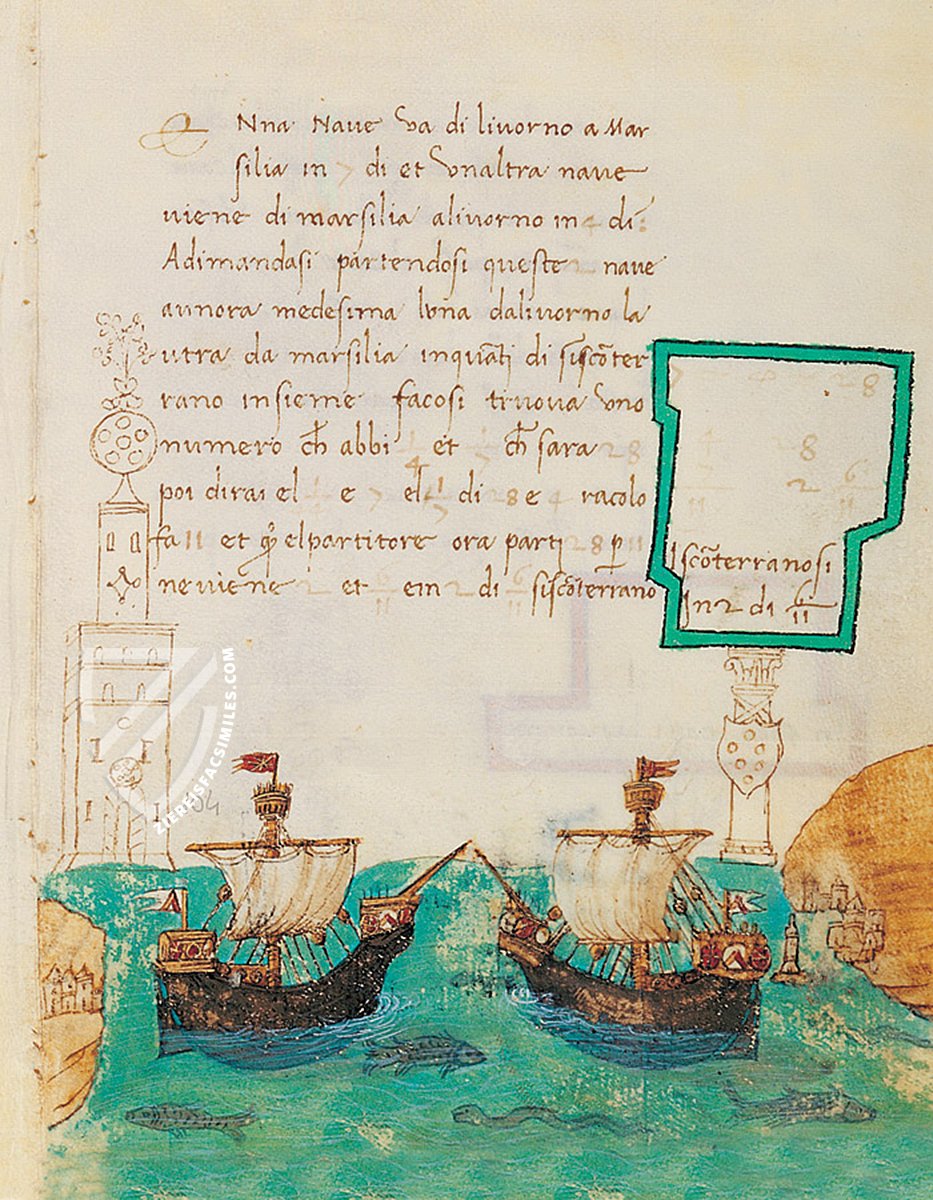 Nna Nave va di livorno a Mar
silia in 7 di et vnaltra nave
viene di marsilia alivorno in 4 di
Adimandasi partendosi queste 2 nave
aunora medesima lvna dalivorno la
vtra da marsilia inquāti di siscōter
rano insieme facosi truova vno
numero ch̄ abbi et ch̄ sara 28
poi dirai el 1/7 e 7 el 1/4 di 28 e racolo
fa 11 et q̄l elpartitore ora parti 28 p 11
neviene 2 6/11 et ein 2 di 6/11 siscōterrano
7 4 28
28
2 6/11
Iscōterranosi
In 2 di 6/11
54
ZIEREISFACSIMILES.COM